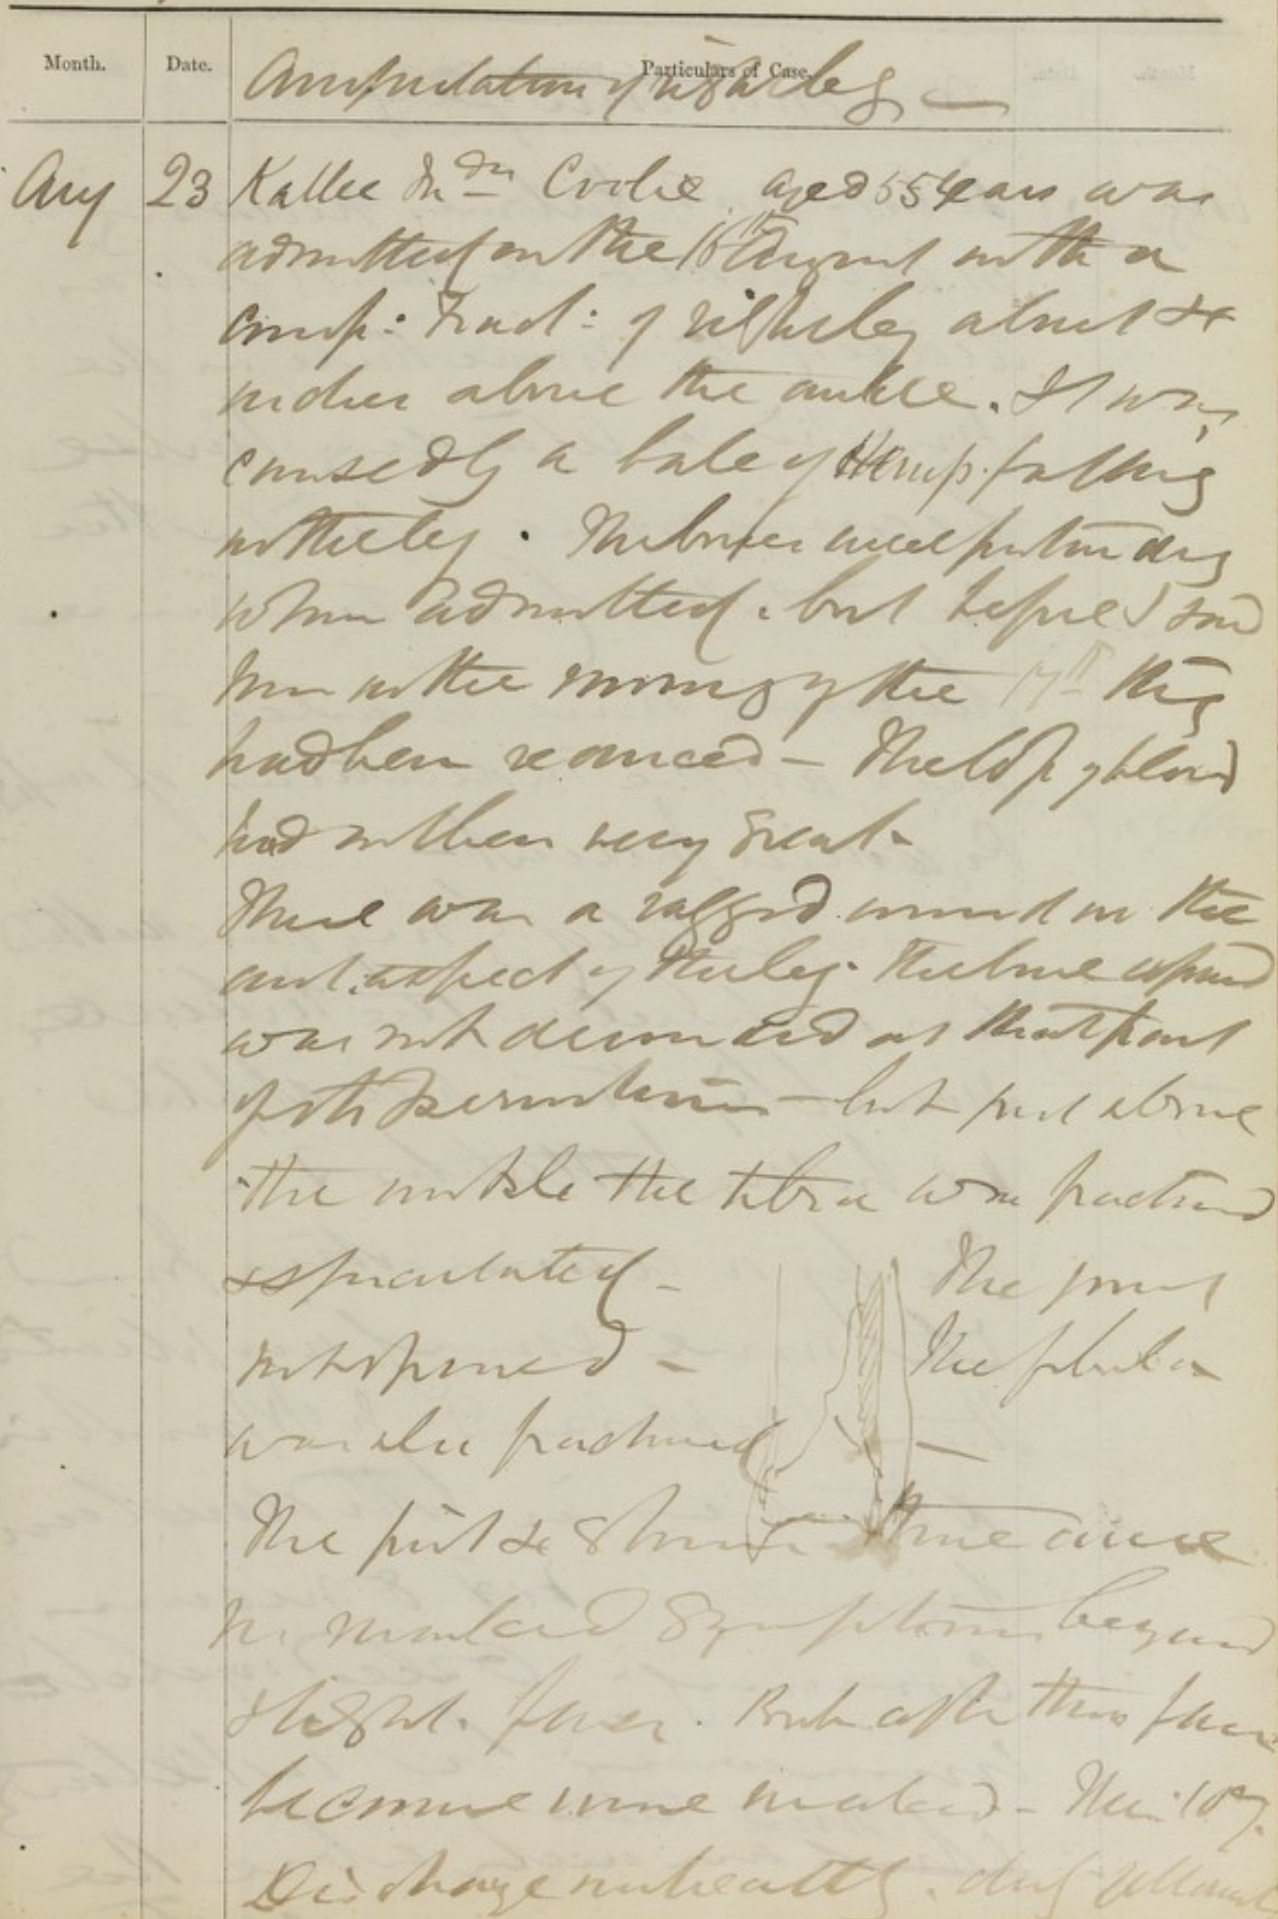 Month. Date. Particulars of Case.
Amputation of right leg —
Aug 23 Kallee Coolie aged 55 years was
admitted on the 16th August with a
comp: Fract: of right leg about
inches above the ankle. It was
caused by a bale of Hemp falling
on the leg. The bones were protruding
when admitted. but before I saw
him on the morning of the 17th this
had been reduced – The loss of blood
had not been very great –
There was a ragged wound on the
ant. aspect of the leg. The bone exposed
was not denuded at that part
of its periosteum – but just above
the ankle the tibia was fractured
& spiculated – The joint
not opened – The fibula
was also fractured —
The first there were
no marked symptoms beyond
slight fever. But after this fever
became more marked –
Discharge unhealthy.